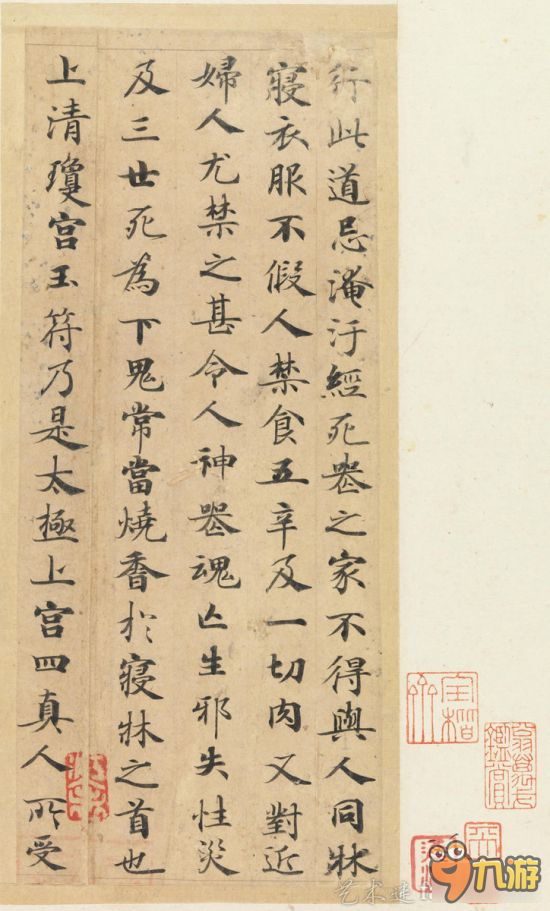 行此道忌淹汙經死喪之家不得與人同牀
寢衣服不假人禁食五辛及一切肉又對近
婦人尤禁之甚令人神喪魂亡生邪失性災
及三世死為下鬼常當燒香於寢牀之首也
上清瓊宮玉符乃是太極上宮四真人所受
九游